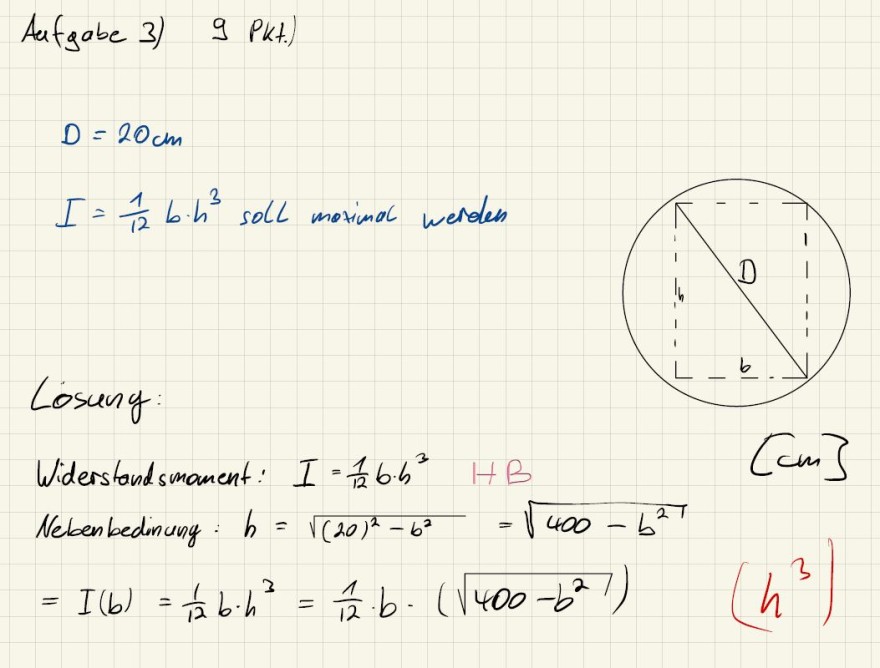 Aufgabe 3) 9 Pkt.)
D = 20cm
I = 1/12 b·h³ soll maximal werden
D
h
b
Lösung:
[cm]
Widerstandsmoment: I = 1/12 b·h³ HB
Nebenbedinung: h = √((20)² – b²) = √(400 – b²)
= I(b) = 1/12 b·h³ = 1/12 · b · (√(400 – b²)) (h³)